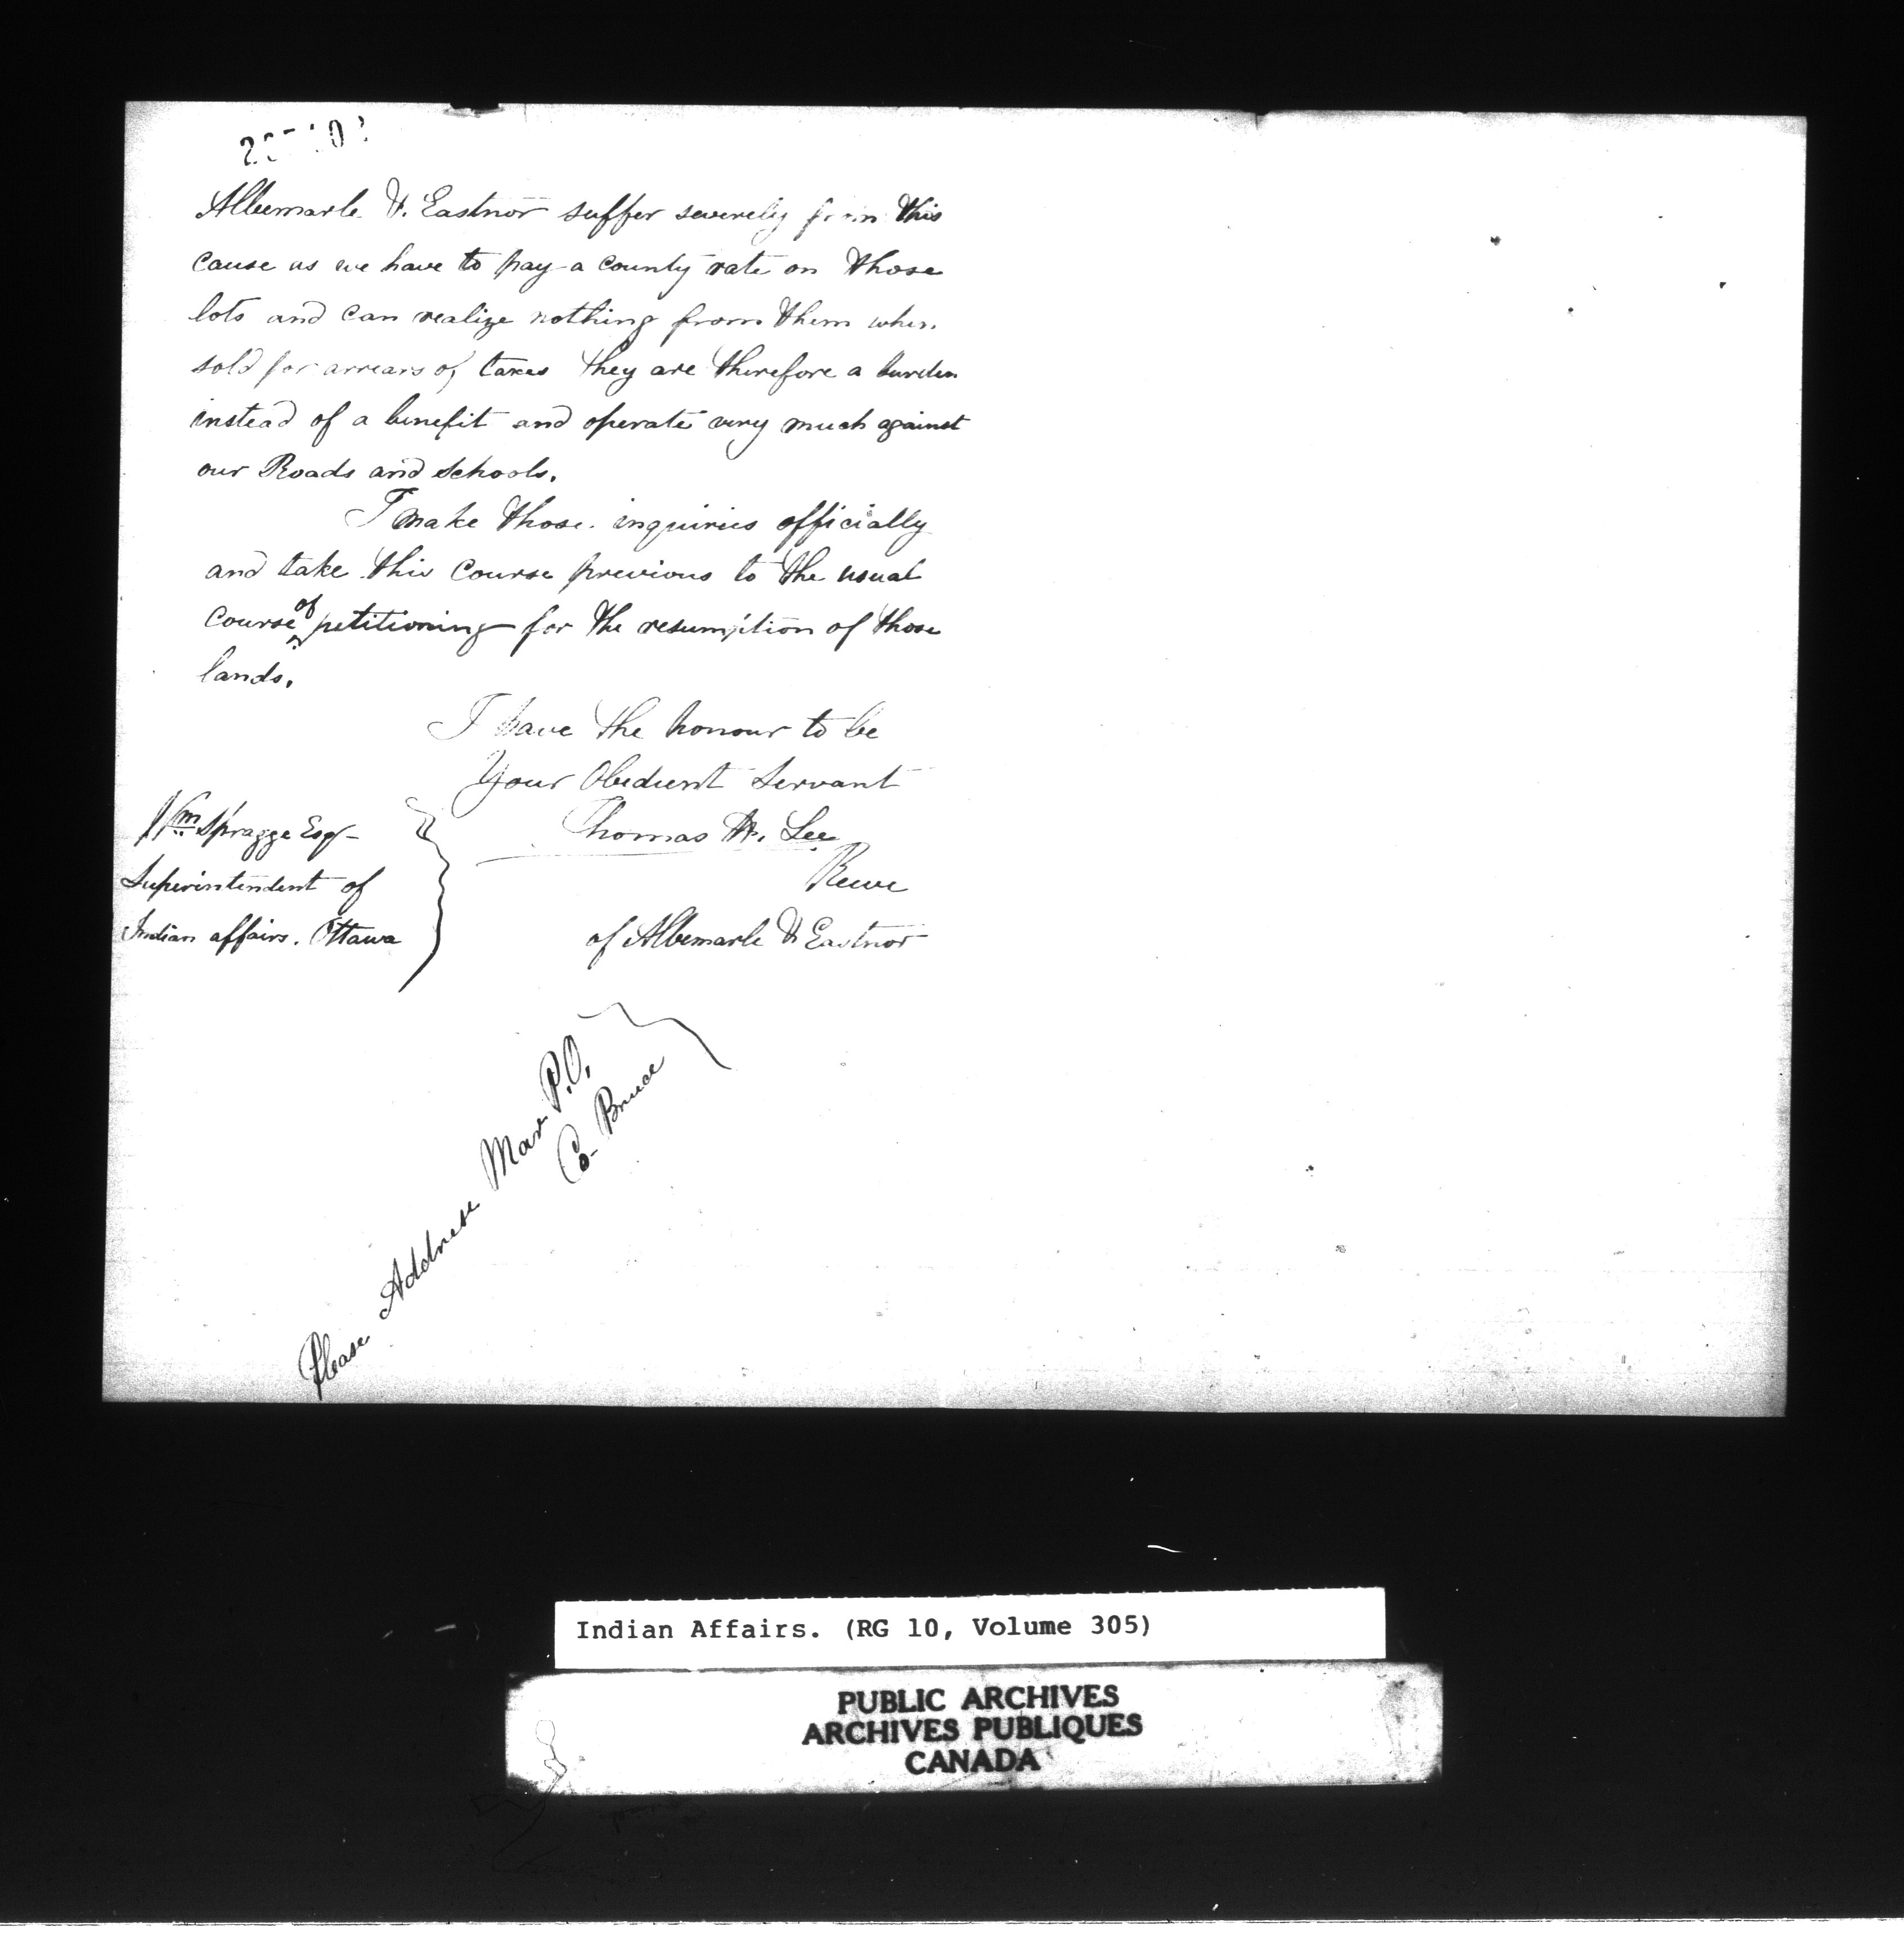 Albemarle & Eastnor suffer severely from this
cause as we have to pay a county rate on those
lots and can realize nothing from them when
sold for arrears of taxes they are therefore a burden
instead of a benefit and operate very much against
our Roads and Schools.
I make those inquiries officially
and take this course previous to the usual
course of petitioning for the resumption of those
lands.
I have the honour to be
Your Obedient Servant
Thomas H. Lee
Reeve
of Albemarle & Eastnor
Wm Spragge Esqr
Superintendent of
Indian affairs. Ottawa
Please Address Mar P.O.
Co- Bruce
Indian Affairs. (RG 10, Volume 305)
PUBLIC ARCHIVES
ARCHIVES PUBLIQUES
CANADA